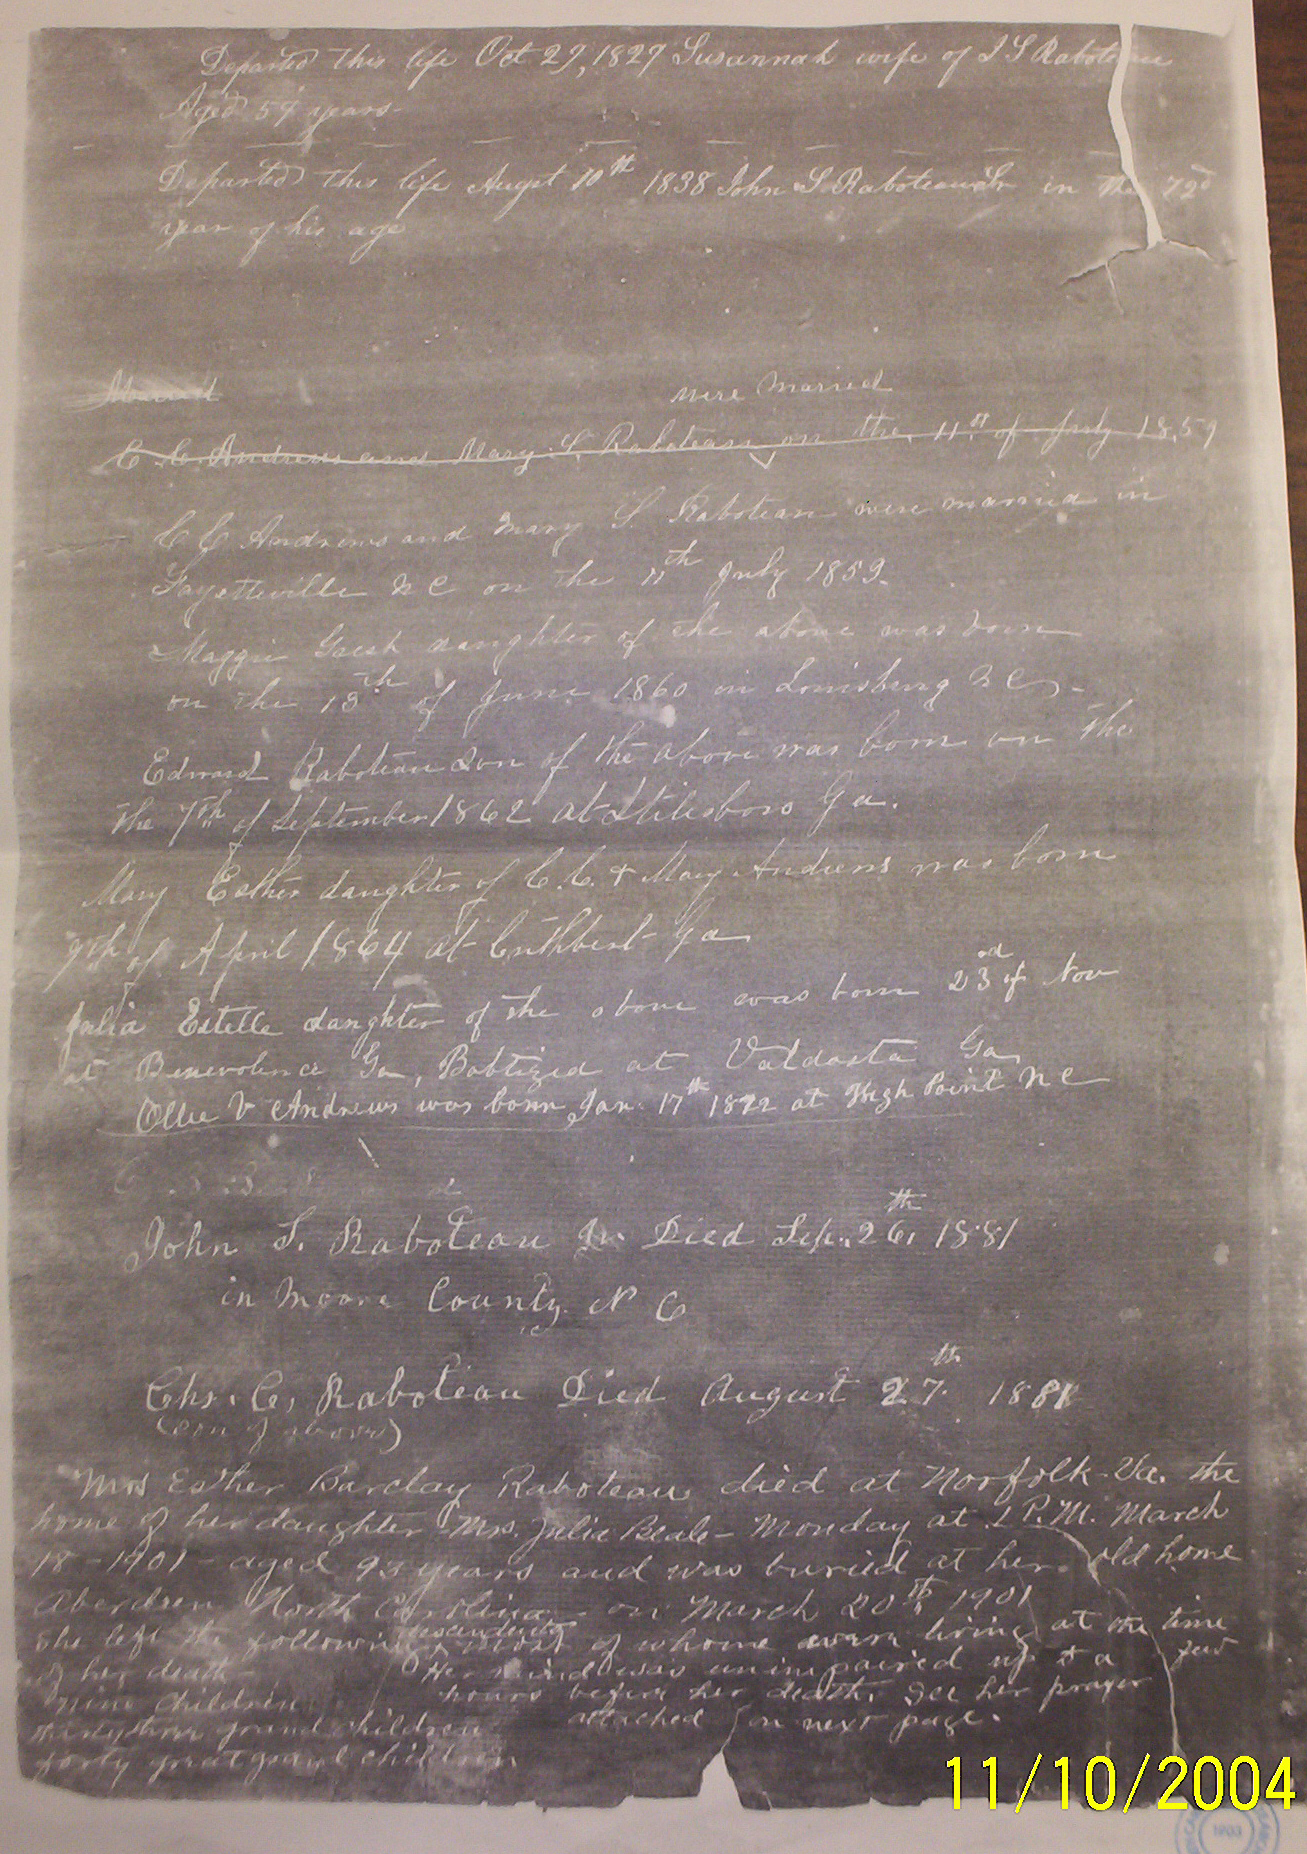 Departed this life Oct 29, 1829 Susannah wife of J S Raboteau
Aged 57 years
Departed this life Augst 10th 1838 John S Raboteau Sr in the 72d
year of his age
Married
were married
C C Andrews and Mary S. Raboteau on the 11th of July 1859
C C Andrews and Mary S. Raboteau were married in
Fayetteville N C on the 11th July 1859.
Maggie daughter of the above was born
on the 13th of June 1860 in Louisburg N C -
Edward Raboteau Son of the above was born on the
the 7th of September 1862 at Stilesboro Ga.
Mary Esther daughter of C. C. & Mary Andrews was born
9th of April 1864 at Cuthbert Ga
Julia Estelle daughter of the above was born 23rd of Nov
at Benevolence Ga, Babtized at Valdosta Ga
Ollie V Andrews was born Jan. 17th 1872 at High Point N C
John S. Raboteau Jr. Died Sep. 26th 1881
in Moore County N C
Chs. C. Raboteau Died August 27th 1881
(Son of above)
Mrs Esther Barclay Raboteau died at Norfolk Va. the
home of her daughter Mrs. Julia Beale - Monday at 1 P.M. March
18 - 1901 - aged 93 years and was buried at her old home
Aberdeen North Carolina - on March 20th 1901
She left the following descendents most of whome were living at the time
of her death - Her mind was unimpaired up to a few
nine children hours before her death. See her prayer
thirty three grand children attached on next page.
forty great grand children
11/10/2004
1903